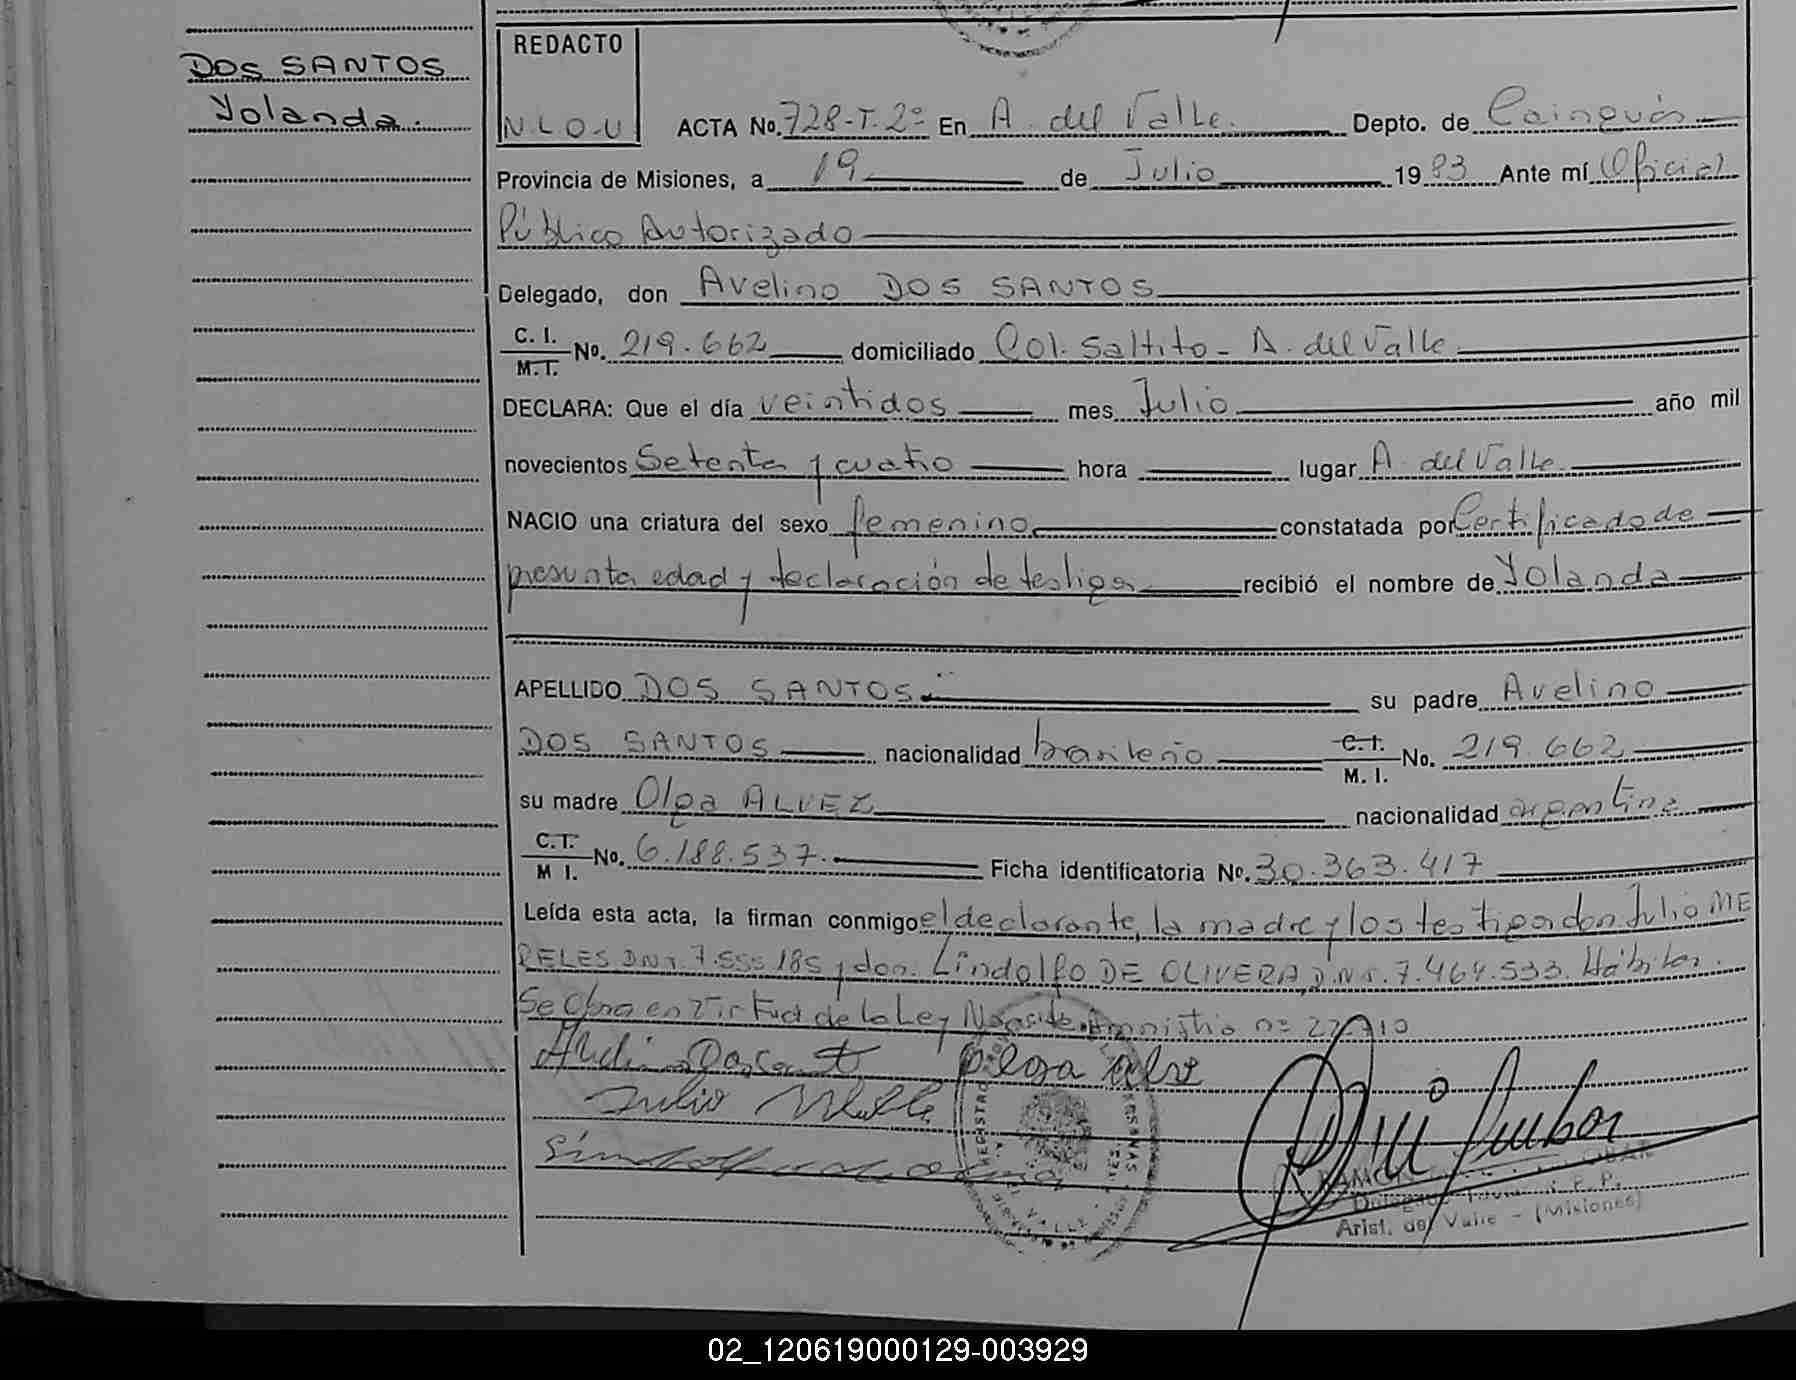 DOS SANTOS
Yolanda.
REDACTO
N.L.O.U
ACTA No. 728-T.2º En A. del Valle. Depto. de Cainguás
Provincia de Misiones, a 19 de Julio 1983 Ante mí Oficial
Público Autorizado
Delegado, don Avelino DOS SANTOS
C. I. / M. I. No. 219.662 domiciliado Col. Saltito - A. del Valle
DECLARA: Que el día veintidos mes Julio año mil
novecientos Setenta y cuatro hora lugar A. del Valle
NACIO una criatura del sexo femenino constatada por Certificado de
presunta edad y declaración de testigos recibió el nombre de Yolanda
APELLIDO DOS SANTOS su padre Avelino
DOS SANTOS nacionalidad brasileño C. I. / M. I. No. 219.662
su madre Olga ALVEZ nacionalidad argentina
C. I. / M I. No. 6.188.537. Ficha identificatoria No. 30.363.417
Leída esta acta, la firman conmigo el declarante, la madre y los testigos don Julio ME
RELES DNI. 7.555.185 y don Lindolfo DE OLIVERA, D.N.I. 7.464.533. Hábiles.
Se Obra en Virtud de la Ley Nac. de Amnistia nº
Olga
Julio
RAMON
Delegado R. P. P.
Arist. del Valle - (Misiones)
02_120619000129-003929